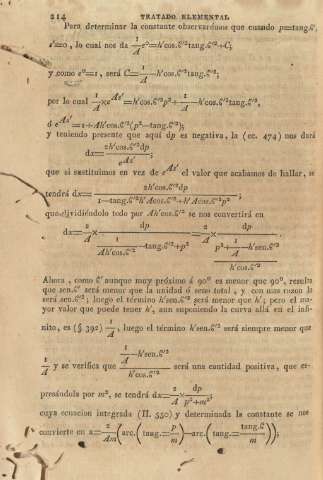 214 TRATADO ELEMENTAL
Para determinar la constante observaremos que cuando p=tang.ϐ',
s'=0, lo cual nos da 1/A e⁰=h'cos.ϐ'²tang.ϐ'²+C;
y como e⁰=1, será C=1/A—h'cos.ϐ'²tang.ϐ'²;
por lo cual 1/A×e^As'=h'cos.ϐ'²p²+1/A—h'cos.ϐ'²tang.ϐ'²,
ó e^As'=1+Ah'cos.ϐ'²(p²—tang.ϐ'²);
y teniendo presente que aquí dp es negativa, la (ec. 474) nos dará
dx=2h'cos.ϐ'²dp/e^As';
que si sustituimos en vez de e^As' el valor que acabamos de hallar, se
tendrá dx=2h'cos.ϐ'²dp/1—tang.ϐ'²h'Acos.ϐ'²+h'Acos.ϐ'²p²;
que dividiéndolo todo por Ah'cos.ϐ'² se nos convertirá en
dx=2/A×dp/1/Ah'cos.ϐ'²—tang.ϐ'²+p²=2/A×dp/p²+1/A—h'sen.ϐ'²/h'cos.ϐ'².
Ahora, como ϐ' aunque muy próximo á 90° es menor que 90°, resulta
que sen.ϐ' será menor que la unidad ó seno total, y con mas razon lo
será sen.ϐ'²; luego el término h'sen.ϐ'² será menor que h'; pero el ma-
yor valor que puede tener h', aun suponiendo la curva allá en el infi-
nito, es (§ 392) 1/A, luego el término h'sen.ϐ'² será siempre menor que
1/A y se verifica que 1/A—h'sen.ϐ'²/h'cos.ϐ'² será una cantidad positiva, que ex-
presándola por m², se tendrá dx=2/A×dp/p²+m²;
cuya ecuacion integrada (II. 550) y determinada la constante se nos
convierte en a=2/Am(arc.(tang.=p/m)—arc.(tang.=tang.ϐ/m));